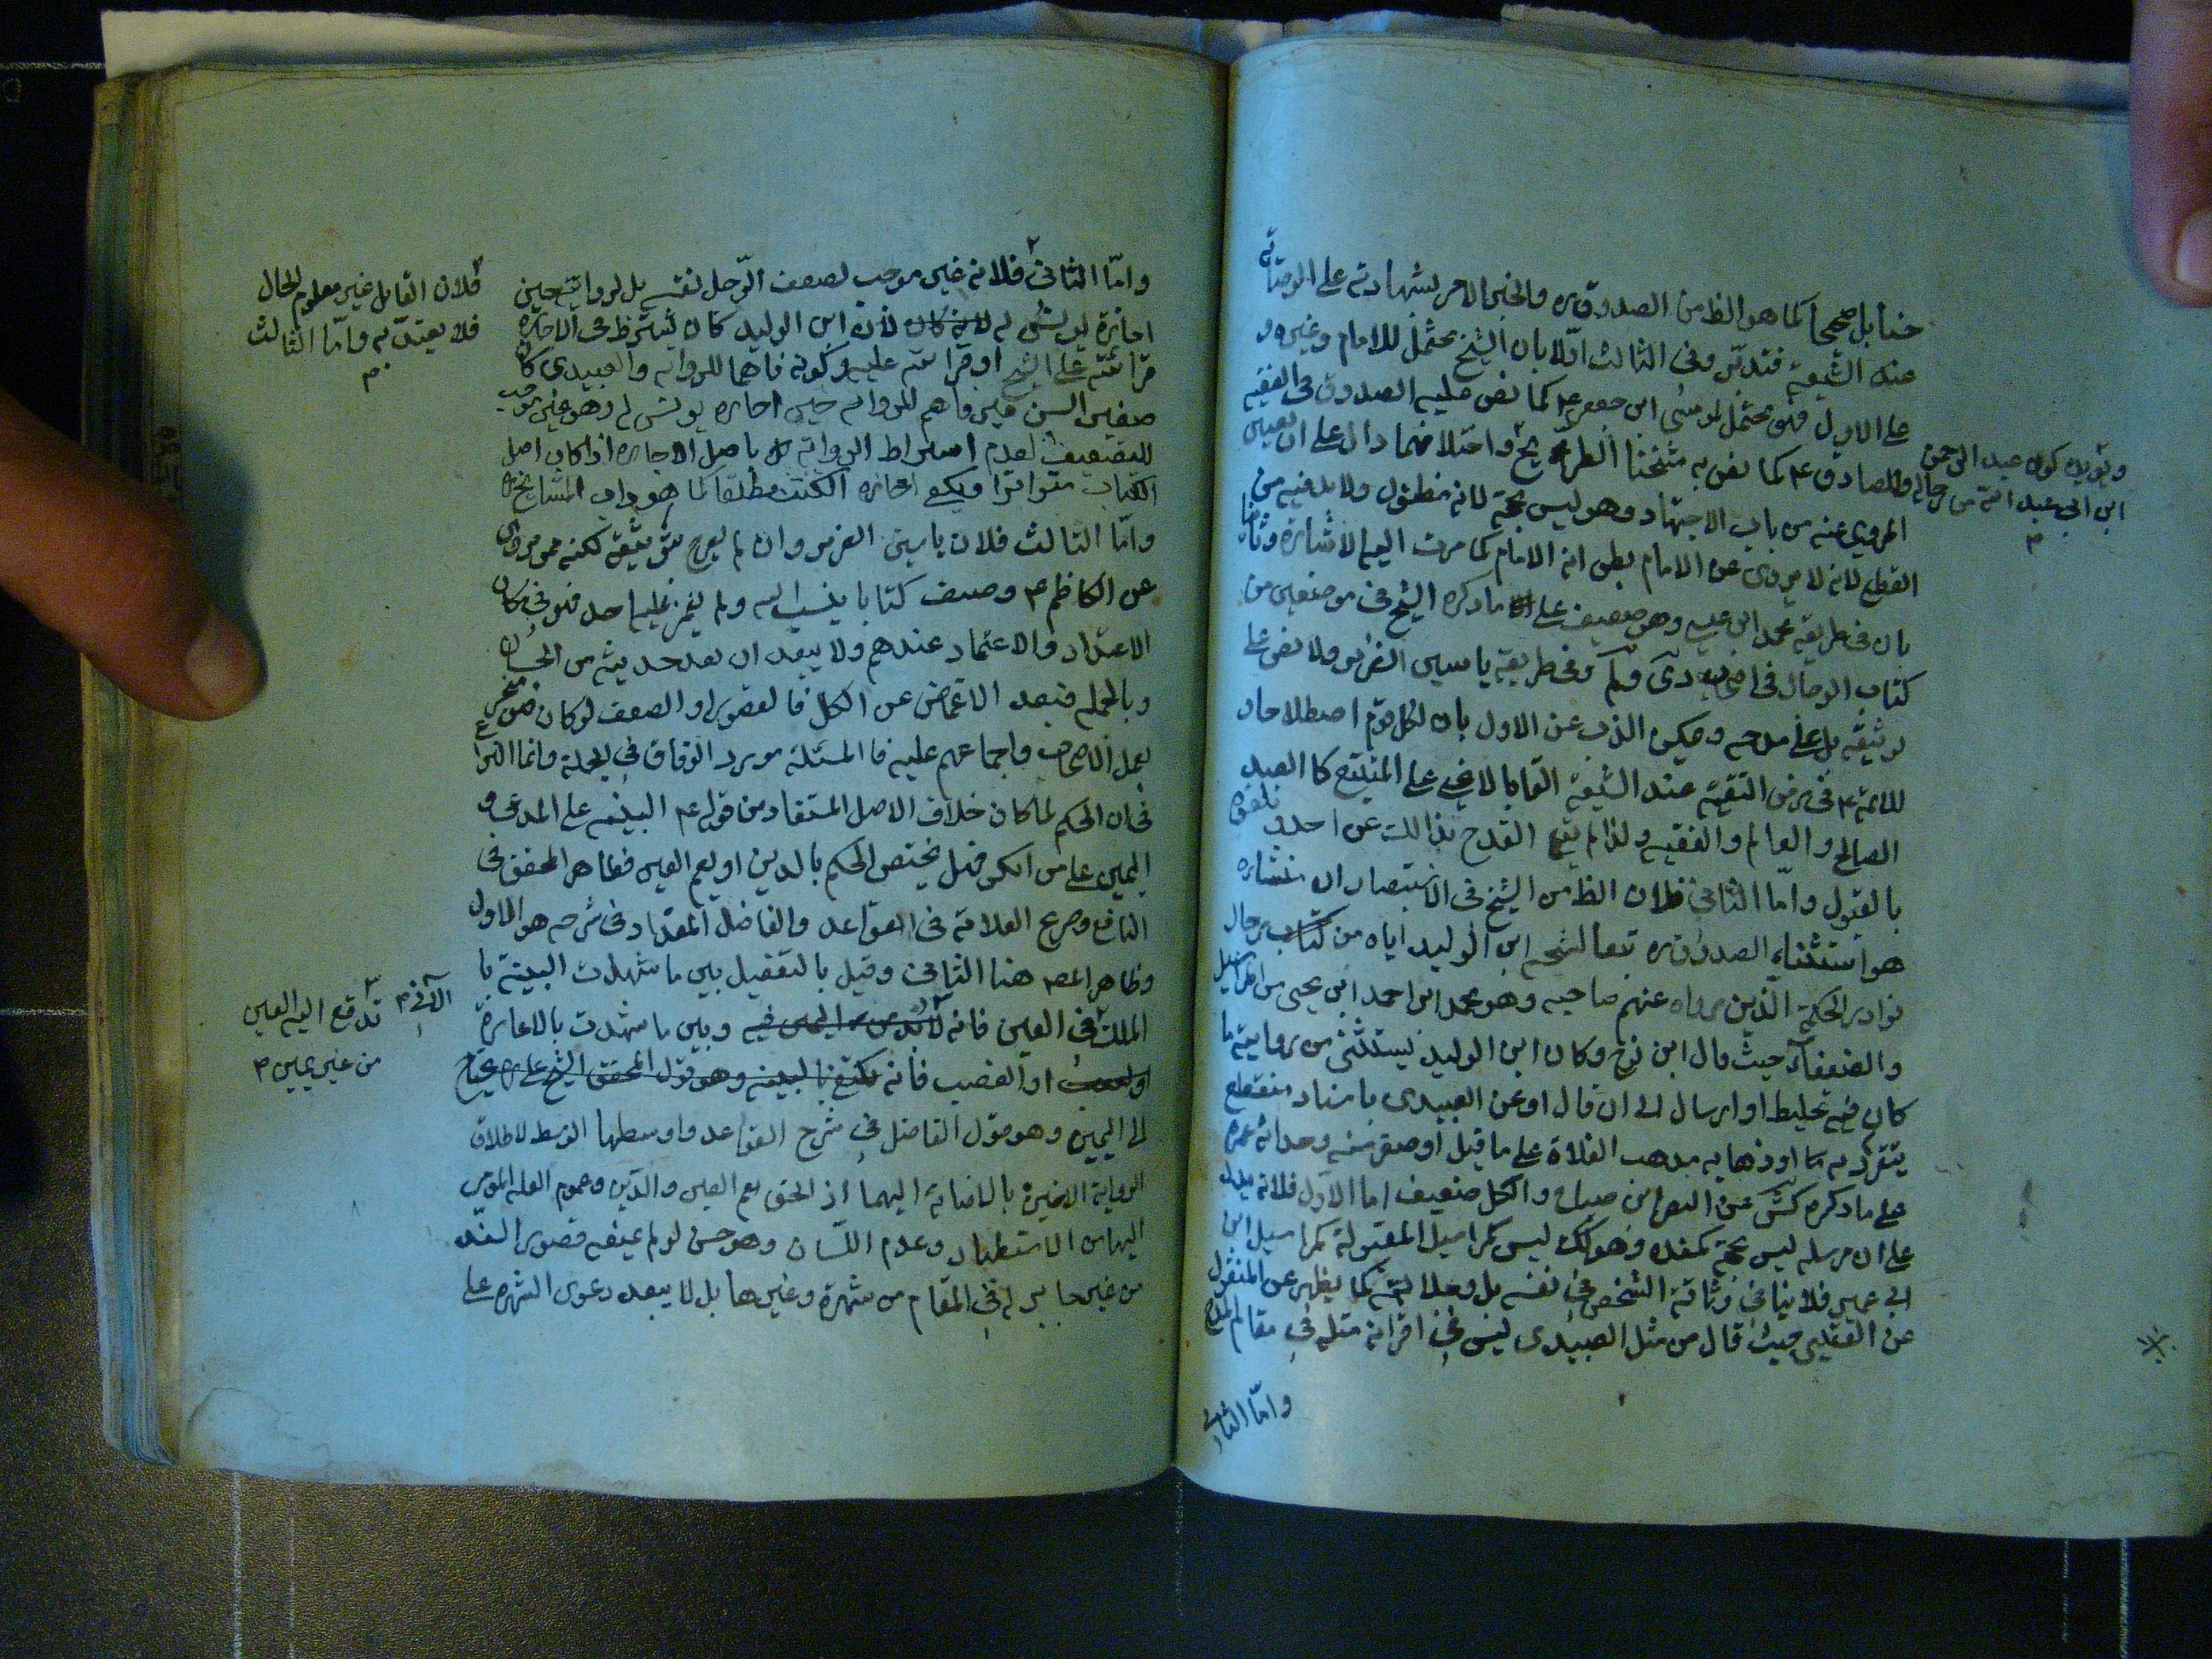 حسنا بل صحيحا كما هو الظ من الصدوق ره والخبر الامر بشهادته على الوصاته
عند الشيعة فتدبر وفى الثالث اولا بان الشيخ محتمل للامام وغيره و
على الاول فهو محتمل لموسى ابن جعفر ع كما نص عليه الصدوق فى الفقيه
وللصادق ع كما نص به شيخنا الطوسى يخ واختلافهما دال على ان تعيين
المروى عنه من باب الاجتهاد وهو ليس بحجة لانه مظنون ولا بد فيه من
القطع لانه لا يروى عن الامام بظن انه الامام كما مرت اليه الاشارة وثانيا
بان فى طريقه محمد ابن عيسى وهو ضعيف على ما ذكره الشيخ فى موضعين من
كتاب الرجال فى اص دى ولم وفى طريقه ياسين الضرير ولا نص على
توثيقه بل على مدحه ويمكن الذب عن الاول بان لكل قوم اصطلاحا و
للائمة ع فى زمن التقية عند الشيعة القابا لا تخفى على المتتبع كالعبد
الصالح والعالم والفقيه ولذا لم يتم القدح بذالك عن احد و تلقوه
بالقبول واما الثانى فلان الظ من الشيخ فى الاستبصار ان منشاءه
هو استثناء الصدوق ره تبعا لشيخه ابن الوليد اياه من كتاب رجال
نوادر الحكمة الذين رواه عنهم صاحبه وهو محمد ابن احمد ابن يحيى من المراسيل
والضعفاء حيث قال ابن نوح وكان ابن الوليد يستثنى من روايته ما
كان فيه تخليط او ارسال الى ان قال او عن العبيدى باسناد منقطع
يتفرد به او ذهابه مذهب الغلاة على ما قيل او صغر سنه وحداثة عمره
على ما ذكره كش عن النصر ابن صباح والكل ضعيف اما الاول فلانه يدل
على ان مرسله ليس بحجة كمفرده وهو كك ليس كمراسيل المقبولة كمراسيل ابن
ابى عمير فلا ينافى وثاقة الشخص فى نفسه بل وجلالته كما يظهر عن المنقول
عن القتيبى حيث قال من مثل العبيدى ليس فى اقرانه مثله فى مقام المدح
واما الثانى
ويؤيده كون عبد الرحمن
ابن ابى عبد الله من رجاله
م
واما الثانى فلانه غير موجب لضعف الرجل نفسه بل لروايته حين
اجازه يونس له لانه كان لان ابن الوليد كان يشترط فى الاجازة
قرائته على الشيخ او قرائته عليه وكونه فاهما للرواية والعبيدى كان
صغير السن غير فاهم للرواية حين اجازه يونس له وهو غير موجب
للتضعيف لعدم اشتراط الرواية باصل الاجازه اذا كان اصل
الكتاب متواترا ويكفى اجازه الكتب مطلقا كما هو داب المشايخ ره
واما الثالث فلان ياسين الضرير وان لم يصرح بتوثيقه لكنه ممن روى
عن الكاظم ع وصنف كتابا ينسب اليه ولم يغمز عليه احد فهو فى مكان
الاعتداد والاعتماد عندهم ولا يبعد ان يعد حديثه من الحسان
وبالجملة فبعد الاغماض عن الكل فالقصور او الضعف لو كان فهو منجبر
بعمل الاصحاب واجماعهم عليه فالمسئلة مورد الوفاق فى الجملة وانما النزاع
فى ان الحكم لما كان خلاف الاصل المستفاد من قوله ع البينة على المدعى و
اليمين على من انكر فهل يختص الحكم بالدين او يعم العين فظاهر المحقق فى
النافع وصريح العلامة فى القواعد والفاضل المقداد فى شرحه هو الاول
وظاهر المص هنا الثانى وقيل بالتفصيل بين ما شهدت البينة با
لملك فى العين فانه لا بد من اليمين فيه وبين ما شهدت بالاعارة
او الغصب فانه يكتفى بالبينه وهو قول المحقق الشيخ على ره يحتاج
الى اليمين وهو قول الفاضل فى شرح القواعد واوسطها الوسط لاطلاق
الرواية الاخيرة بالاضافة اليهما اذ الحق يعم العين والدين وعموم العلة المومى
اليها من الاستظهار وعدم اللسان وهو حسن لو لم يمنعه قصور السند
من غير جابر له فى المقام من شهرة وغيرها بل لا يبعد دعوى الشهره على
فلان القايل غير معلوم الحال
فلا يعتد به واما الثالث
م
تدفع اليه العين
من غير يمين م